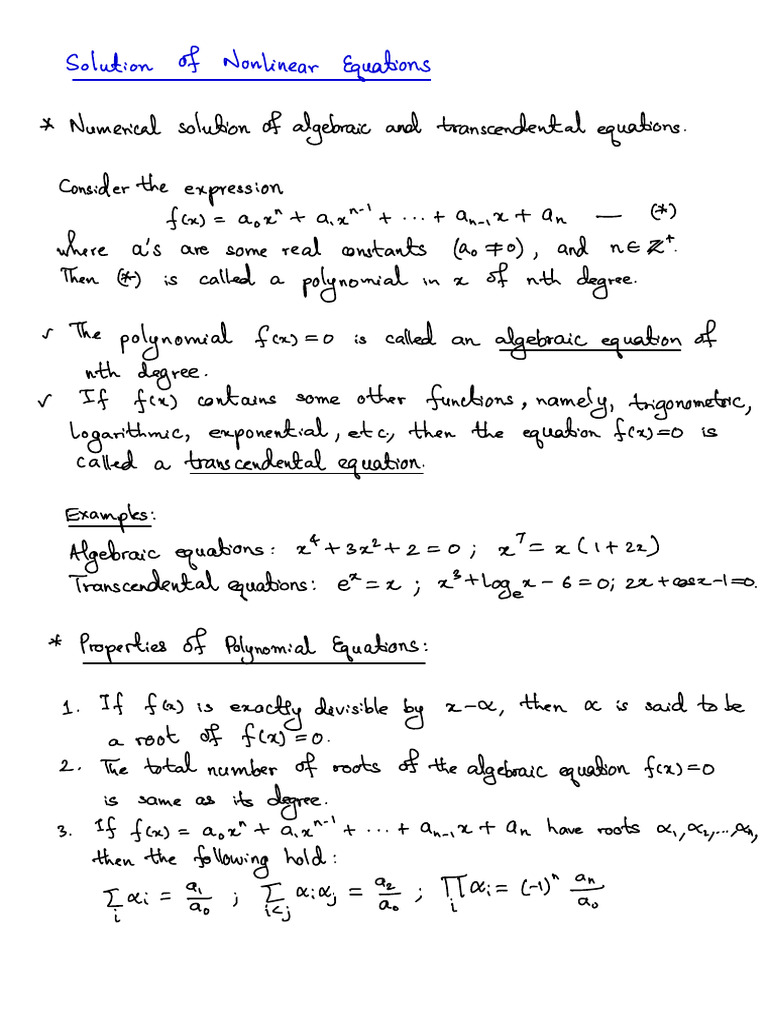 Solution of Nonlinear Equations
* Numerical solution of algebraic and transcendental equations.
Consider the expression
f(x) = a₀xⁿ + a₁xⁿ⁻¹ + ⋯ + aₙ₋₁x + aₙ — (*)
where a's are some real constants (a₀ ≠ 0), and n ∈ ℤ⁺.
Then (*) is called a polynomial in x of nth degree.
✓ The polynomial f(x) = 0 is called an algebraic equation of
nth degree.
✓ If f(x) contains some other functions, namely, trigonometric,
logarithmic, exponential, etc, then the equation f(x)=0 is
called a transcendental equation.
Examples:
Algebraic equations: x⁴ + 3x² + 2 = 0 ; x⁷ = x (1 + 2x)
Transcendental equations: eˣ = x ; x³ + logₑx − 6 = 0; 2x + cosx − 1 = 0.
* Properties of Polynomial Equations:
1. If f(x) is exactly divisible by x−α, then α is said to be
a root of f(x) = 0.
2. The total number of roots of the algebraic equation f(x) = 0
is same as its degree.
3. If f(x) = a₀xⁿ + a₁xⁿ⁻¹ + ⋯ + aₙ₋₁x + aₙ have roots α₁, α₂, ..., αₙ,
then the following hold:
∑ᵢ αᵢ = a₁/a₀ ; ∑_{i<j} αᵢαⱼ = a₂/a₀ ; ∏ᵢ αᵢ = (−1)ⁿ aₙ/a₀